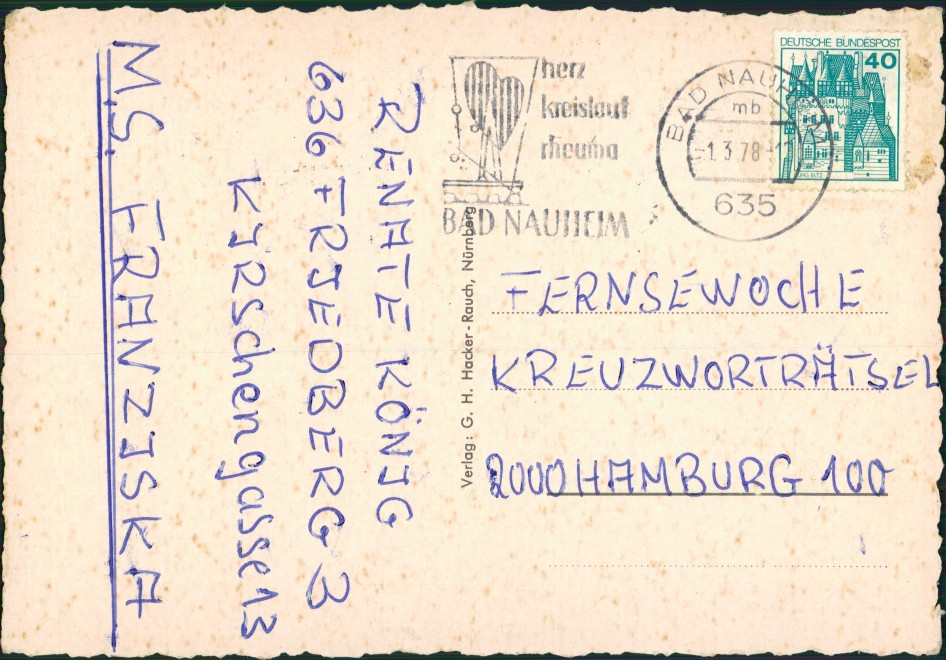 RENATE KÖNIG
636 FRIEDBERG 3
KIRSchengasse 13
M.S. FRANZISKA
Verlag: G. H. Hacker-Rauch, Nürnberg
herz
kreislauf
rheuma
BAD NAUHEIM
BAD NAUHEIM
mb
-1.3.78
635
DEUTSCHE BUNDESPOST
40
BURG ELTZ
FERNSEWOCHE
KREUZWORTRÄTSEL
2000 HAMBURG 100